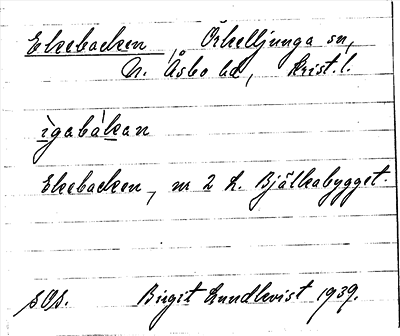 Ekebacken, Örkelljunga sn,
N. Åsbo hd, Krist. l.
ìgabákan
Ekebacken, nr 2 L. Bjälkabygget.
sOs. Birgit Lundkvist 1939.